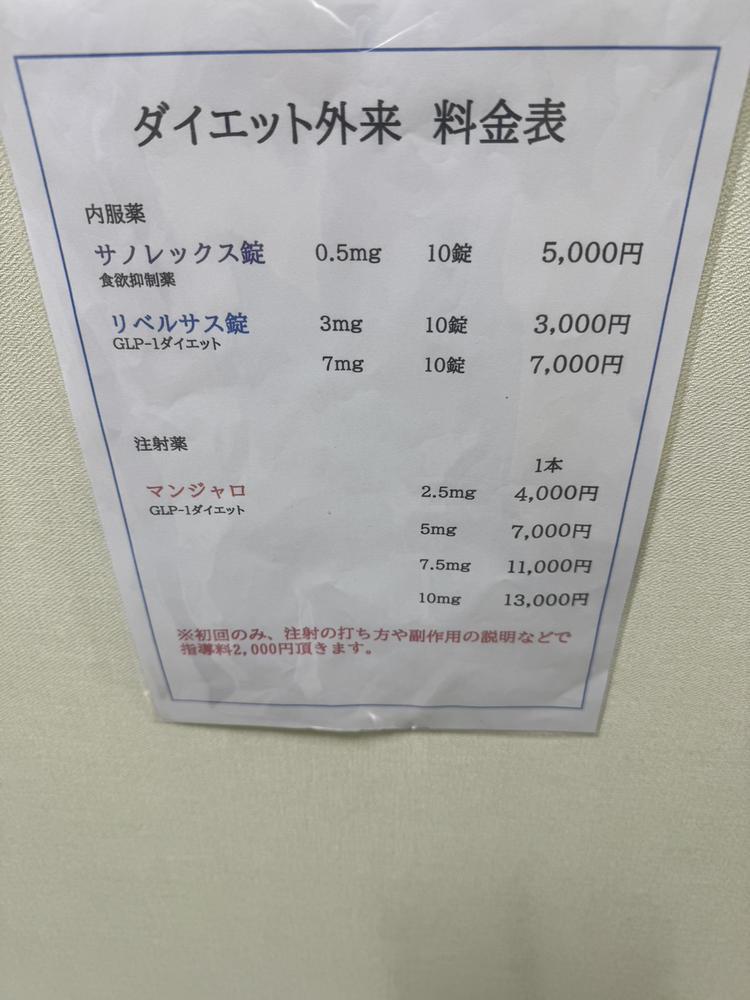 ダイエット外来 料金表
内服薬
サノレックス錠 0.5mg 10錠 5,000円
食欲抑制薬
リベルサス錠 3mg 10錠 3,000円
GLP-1ダイエット
7mg 10錠 7,000円
注射薬
1本
マンジャロ 2.5mg 4,000円
GLP-1ダイエット
5mg 7,000円
7.5mg 11,000円
10mg 13,000円
※初回のみ、注射の打ち方や副作用の説明などで
指導料2,000円頂きます。